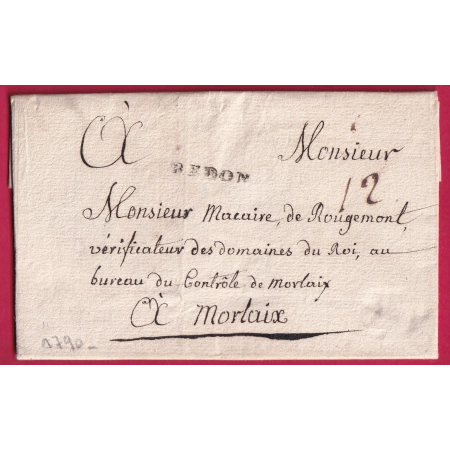 À Monsieur
REDON
12
Monsieur Macaire, de Rougemont,
vérificateur des domaines du Roi, au
bureau du Contrôle de morlaix
À Morlaix
1790